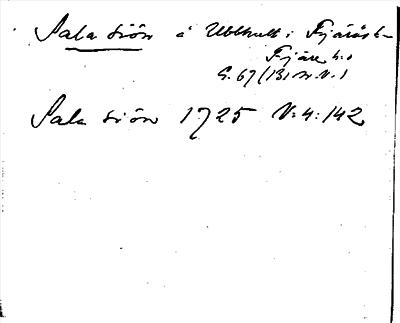 Sala siön å Ubbhult i Fjärås s–
Fjäre h:d
G. 67 (131 n. V.)
Sala siön 1725 V:4:142